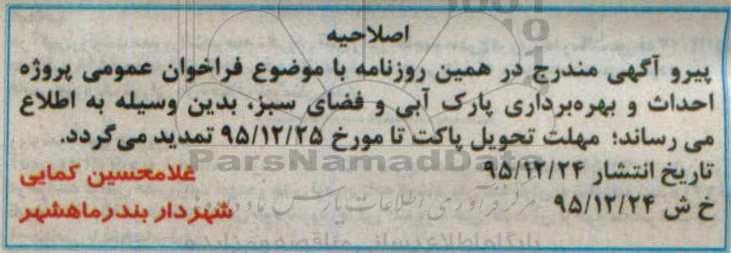 اصلاحیه
پیرو آگهی مندرج در همین روزنامه با موضوع فراخوان عمومی پروژه
احداث و بهره‌برداری پارک آبی و فضای سبز، بدین وسیله به اطلاع
می رساند؛ مهلت تحویل پاکت تا مورخ ۹۵/۱۲/۲۵ تمدید می‌گردد.
تاریخ انتشار ۹۵/۱۲/۲۴
غلامحسین کمایی
خ ش ۹۵/۱۲/۲۴
شهردار بندرماهشهر
ParsNamadData
مرکز فرآوری اطلاعات پارس نماد داده‌ها
پایگاه اطلاع رسانی مناقصه و مزایده